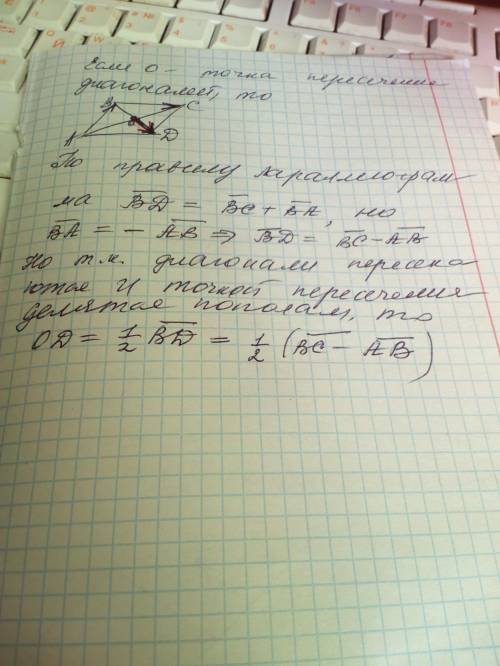 Если O - точка пересечение
диагоналей, то
B C
O
A D
По правилу параллеограм
ма BD = BC + BA, но
BA = - AB ⇒ BD = BC - AB
Но т.к. диагонали пересека
ются и точкой пересечения
делятся пополам, то
OD = 1/2 BD = 1/2 (BC - AB)